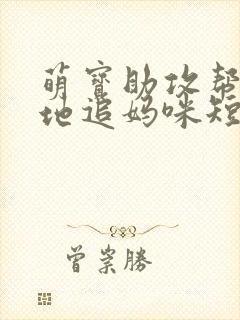 萌宝助攻帮
地追妈咪短
曾崇勝